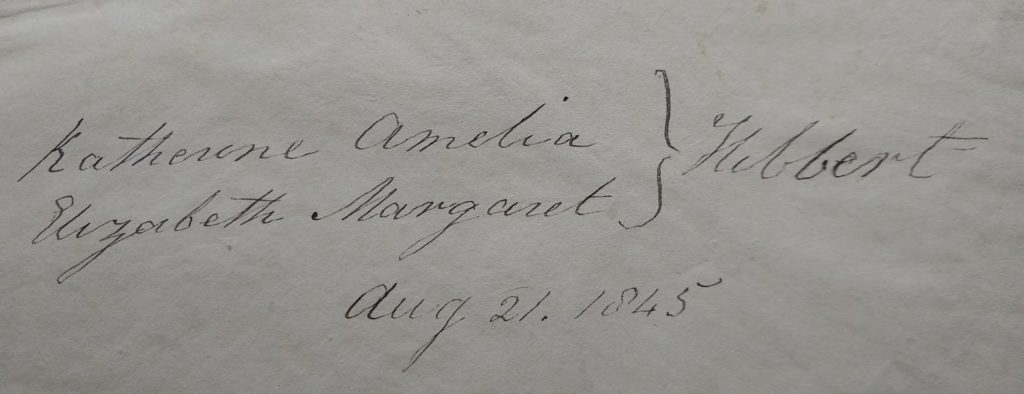 Katherine Amelia } Hibbert
Elizabeth Margaret
Aug 21. 1845